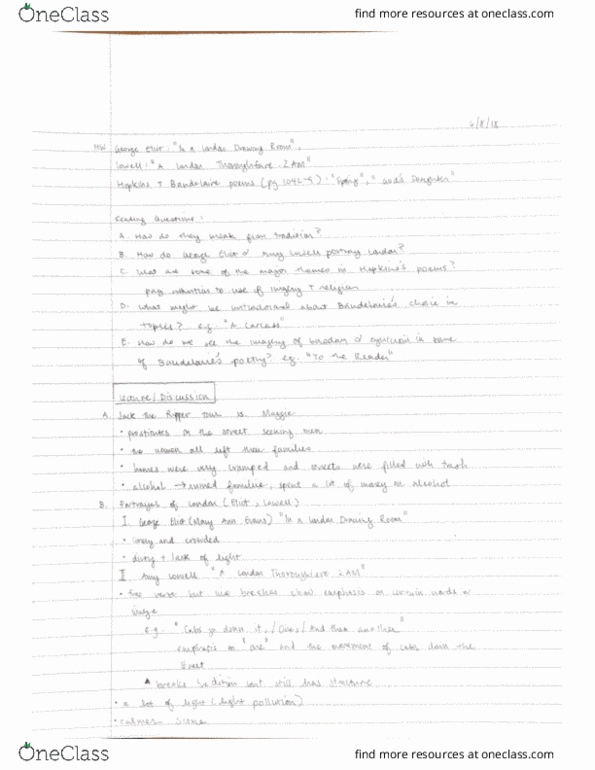 OneClass
find more resources at oneclass.com
4/8/18
HW George Eliot: "In a London Drawing Room",
Lowell: "A London Thoroughfare. 2AM"
Hopkins + Baudelaire poems (pg 1042-5) "Spring", "God's
Reading Questions:
A. How do they break from tradition?
B. How do George Eliot & Amy Lowell portray London?
C. What are some of the major themes in Hopkins's poems?
pay attention to use of imagery + religion
D. What might be untraditional about Baudelaire's choice in
topics? e.g. "A Carcass"
E. How do we see the imagery of boredom & cynicism in some
of Baudelaire's poetry? e.g. "To the Reader"
Lecture/Discussion
A. Jack the Ripper Tour Maggie
• prostitutes on the street seeking men
• the women all left their families
• homes were very cramped and streets were filled with trash
• alcohol → ruined families, spent a lot of money on alcohol
B. Portrayals of London (Eliot, Lowell)
I. George Eliot (Mary Ann Evans) "In a London Drawing Room"
• lonely and crowded
• dirty + lack of light
II Amy Lowell "A London Thoroughfare 2AM"
• free verse but line breaks show emphasis on certain words or
image
e.g. "Cabs go down it, / One, / And then another"
emphasis on "one" and the movement of cabs down the
street
▲ breaks tradition but still has structure
• a lot of light (light pollution)
• calmer scene
OneClass
find more resources at oneclass.com